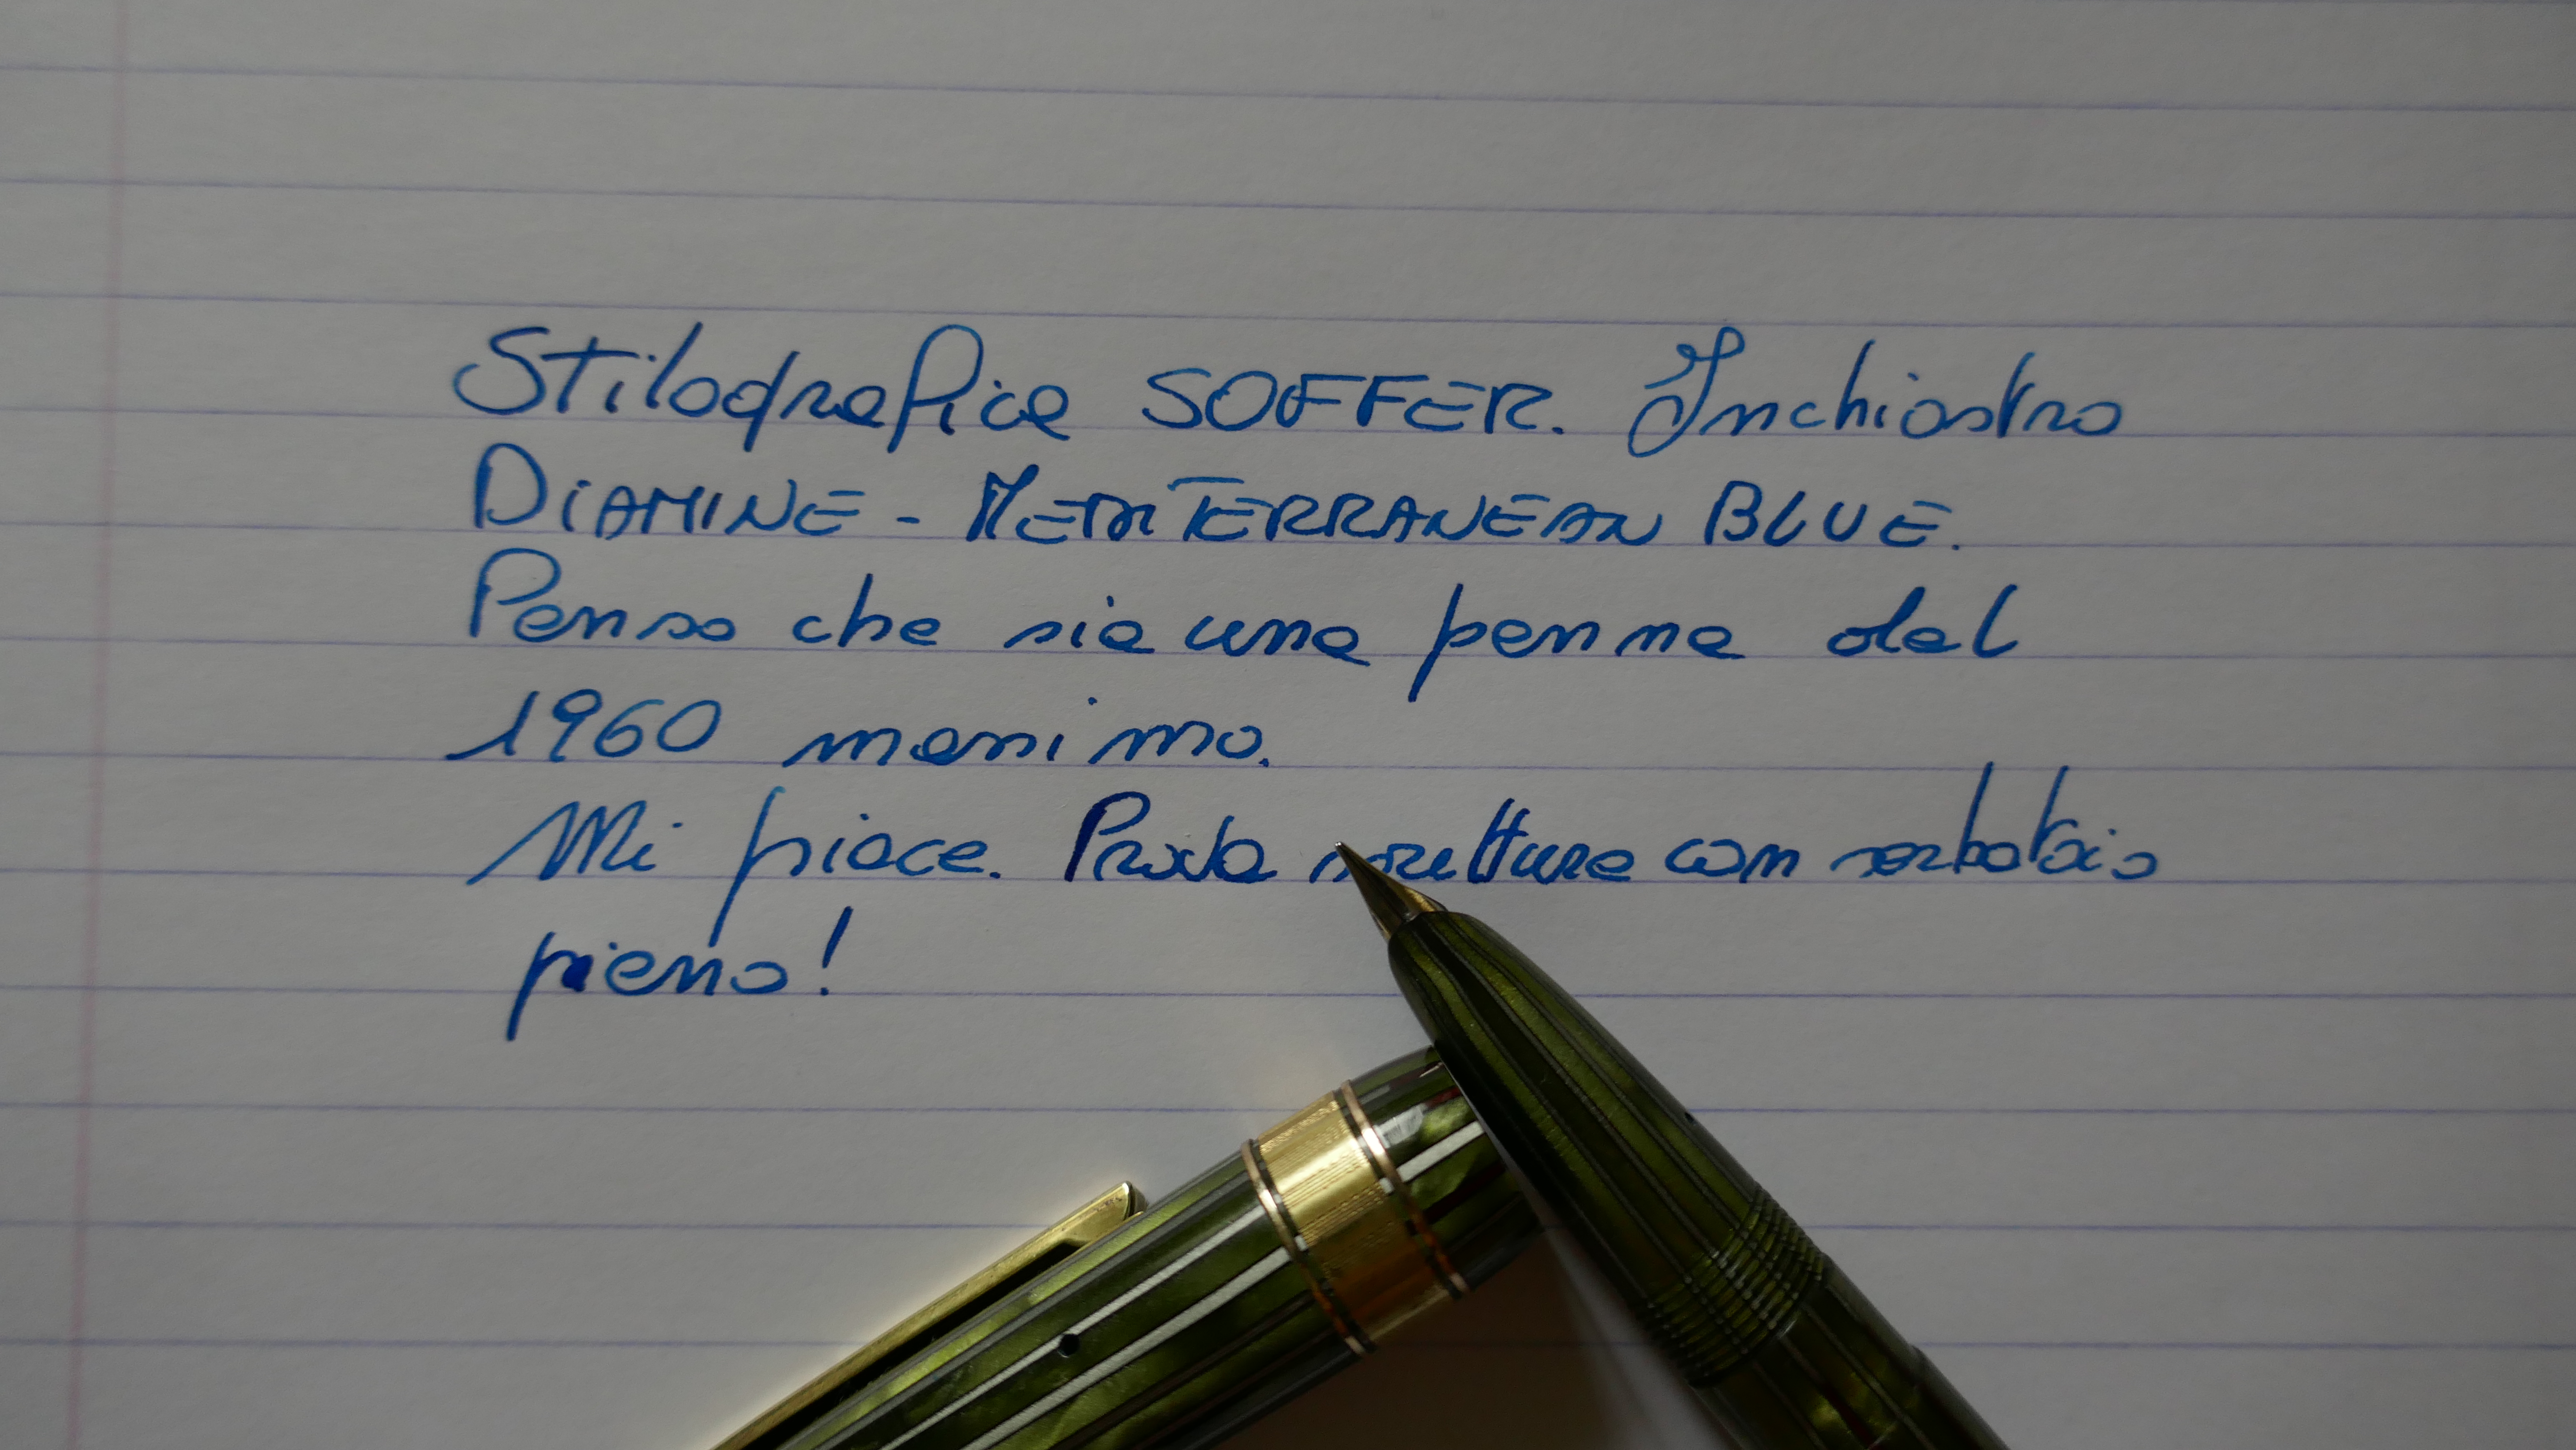 Stilografica SOFFER. Inchiostro
DiAMINE - MEDITERRANEAN BLUE.
Penso che sia una penna del
1960 massimo.
Mi piace. Prova scrittura con serbatoio
pieno!